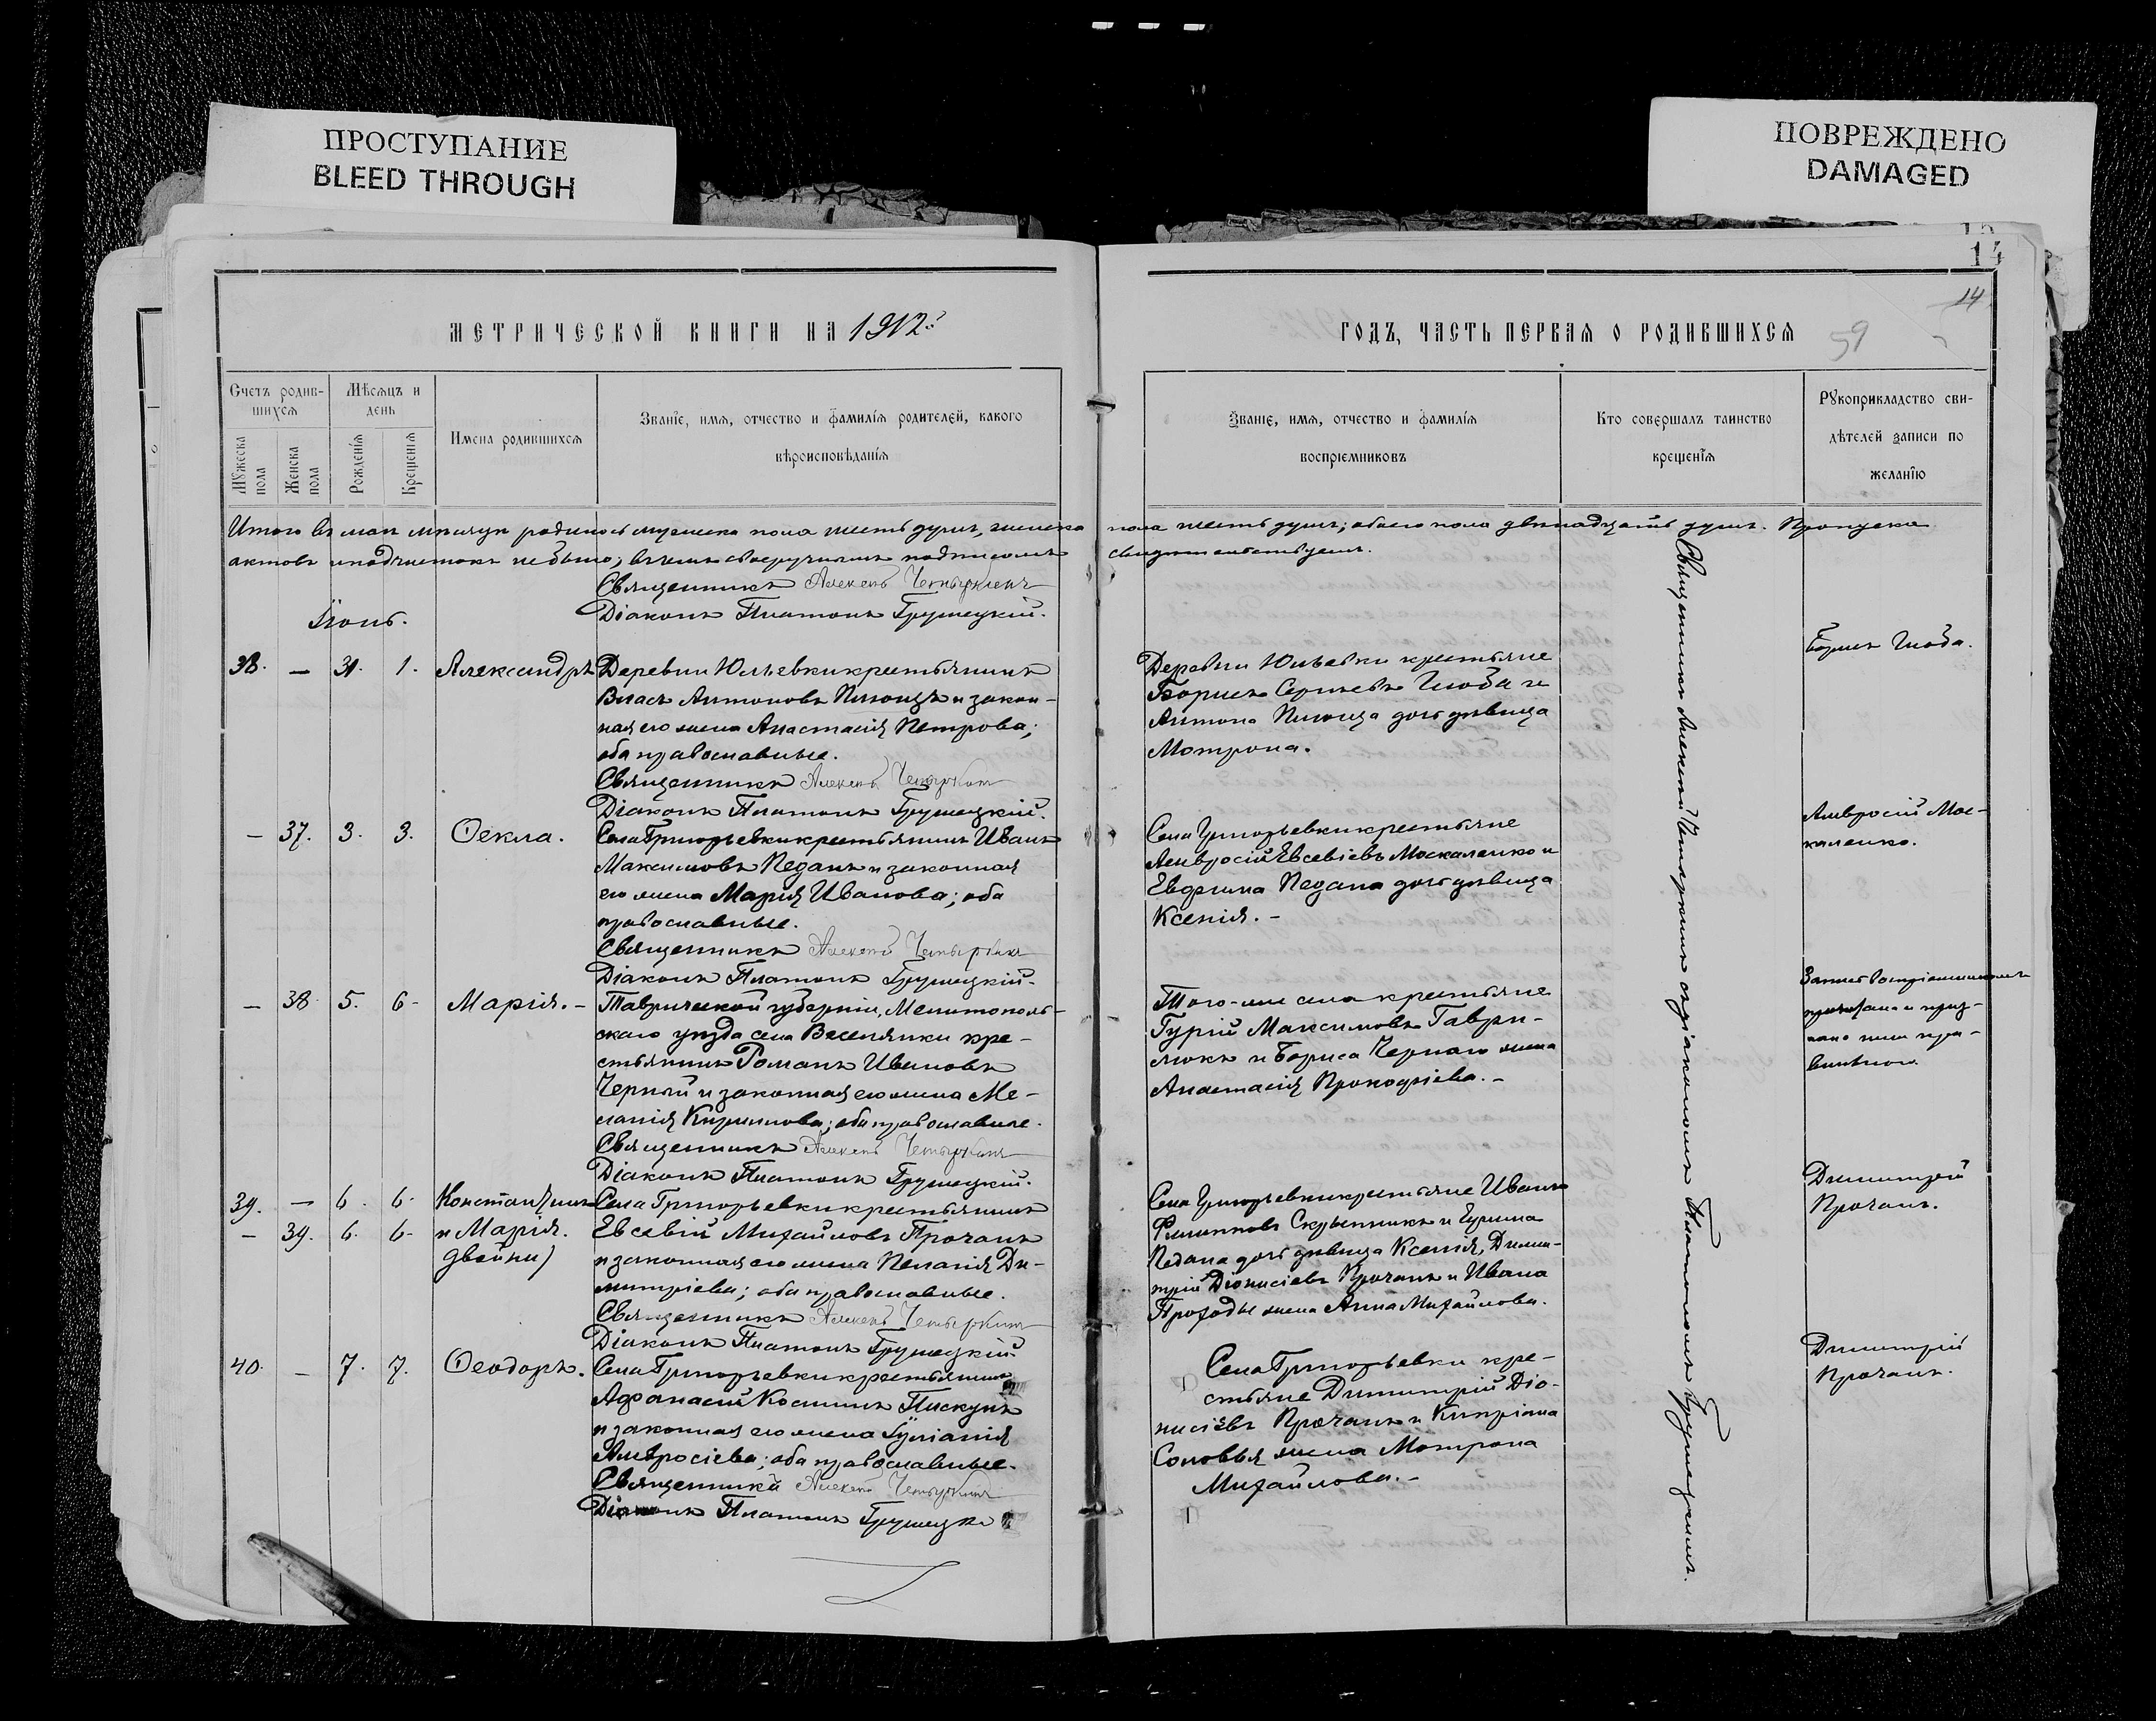 ПРОСТУПАНИЕ
BLEED THROUGH
ПОВРЕЖДЕНО
DAMAGED
14
14
59
МЕТРИЧЕСКОЙ КНИГИ НА 1912
ГОДЪ, ЧАСТЬ ПЕРВАЯ О РОДИВШИХСЯ
Счетъ родив-
шихся
Мѣсяцъ и
день
Мужеска
пола
Женска
пола
Рожденія
Крещенія
Имена родившихся
Званіе, имя, отчество и фамилія родителей, какого
вѣроисповѣданія
Званіе, имя, отчество и фамилія
воспріемниковъ
Кто совершалъ таинство
крещенія
Рукоприкладство сви-
дѣтелей записи по
желанію
Итого въ маѣ мѣсяцѣ родилось мужеска пола шесть душъ, женска пола шесть душъ; обоего пола двѣнадцать душъ. Пропуска
актовъ и подчистокъ не было; въ чемъ собственоручнымъ подписомъ свидѣтельствуемъ.
Священникъ Алексѣй Четыркинъ
Діаконъ Платонъ Грушецкій.
Іюнь.
38. — 31. 1. Александръ
Деревни Юльевки крестьянинъ
Власъ Антоновъ и закон-
ная его жена Анастасія Петрова;
оба православные.
Священникъ Алексѣй Четыркинъ
Діаконъ Платонъ Грушецкій.
Деревни Юльевки крестьяне
Борисъ Сергѣевъ Глоба и
Антона дочь дѣвица
Мотрона.
Борисъ Глоба.
— 37. 3. 3. Ѳекла.
Села Григорьевки крестьянинъ Иванъ
Максимовъ Педанъ и законная
его жена Марія Иванова; оба
православные.
Священникъ Алексѣй Четыркинъ
Діаконъ Платонъ Грушецкій.
Села Григорьевки крестьяне
Амвросій Евсевіевъ Москаленко и
Евфима Педана дочь дѣвица
Ксенія. -
Амвросій Мос-
каленко.
— 38 5. 6 - Марія. -
Таврической губерніи, Мелитополь-
скаго уѣзда села Веселянки кре-
стьянинъ Романъ Ивановъ
Черный и законная его жена Ме-
ланія Кириллова; оба православные.
Священникъ Алексѣй Четыркинъ
Діаконъ Платонъ Грушецкій.
Того-же села крестьяне
Гурій Максимовъ Гаври-
люкъ и Бориса Чернаго жена
Анастасія Прокофіева. -
Запись воспріемникомъ
прочитана и приз-
нана имъ пра-
вильною.
39. — 6. 6. Константинъ
— 39. 6. 6 - и Марія.
двойни)
Села Григорьевки крестьянинъ
Евсевій Михайловъ Прочанъ
и законная его жена Пелагія Ди-
митріева; оба православные.
Священникъ Алексѣй Четыркинъ
Діаконъ Платонъ Грушецкій.
Села Григорьевки крестьяне Иванъ
Филипповъ Скрыпникъ и
Педана дочь дѣвица Ксенія, Дими-
трій Діонисіевъ Прочанъ и Ивана
Проходы жена Анна Михайлова.
Димитрій
Прочанъ.
40. — 7. 7. Ѳеодоръ.
Села Григорьевки крестьянинъ
Афанасій Косьминъ Пискунъ
и законная его жена Іуліанія
Амвросіева; оба православные.
Священникъ Алексѣй Четыркинъ
Діаконъ Платонъ Грушецкі
Села Григорьевки кре-
стьяне Димитрій Діо-
нисіевъ Прочанъ и Кипріана
Соловья жена Мотрона
Михайлова. -
Димитрій
Прочанъ.
Священникъ Алексѣй Четыркинъ съ діакономъ Платономъ Грушецкимъ.